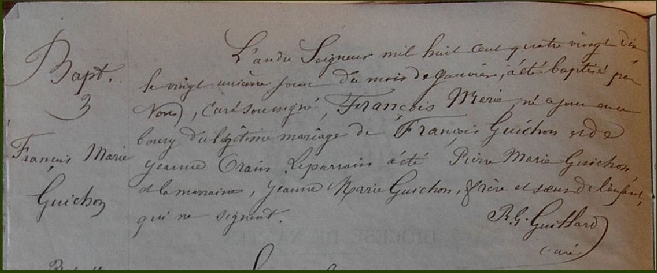 Bapt.
3
François Marie
Guichon
L'an du Seigneur mil huit cent quatre vingt dix
le vingt unième jour du mois de janvier, a été baptisé par
Nous, curé soussigné, François Marie né a jour au
bourg du légitime mariage de François Guichon et de
Jeanne Orain. Le parrain a été Pierre Marie Guichon
et la marraine, Jeanne Marie Guichon, frère et soeur de l'enfant,
qui ne signent.
R. G. Guillard
curé